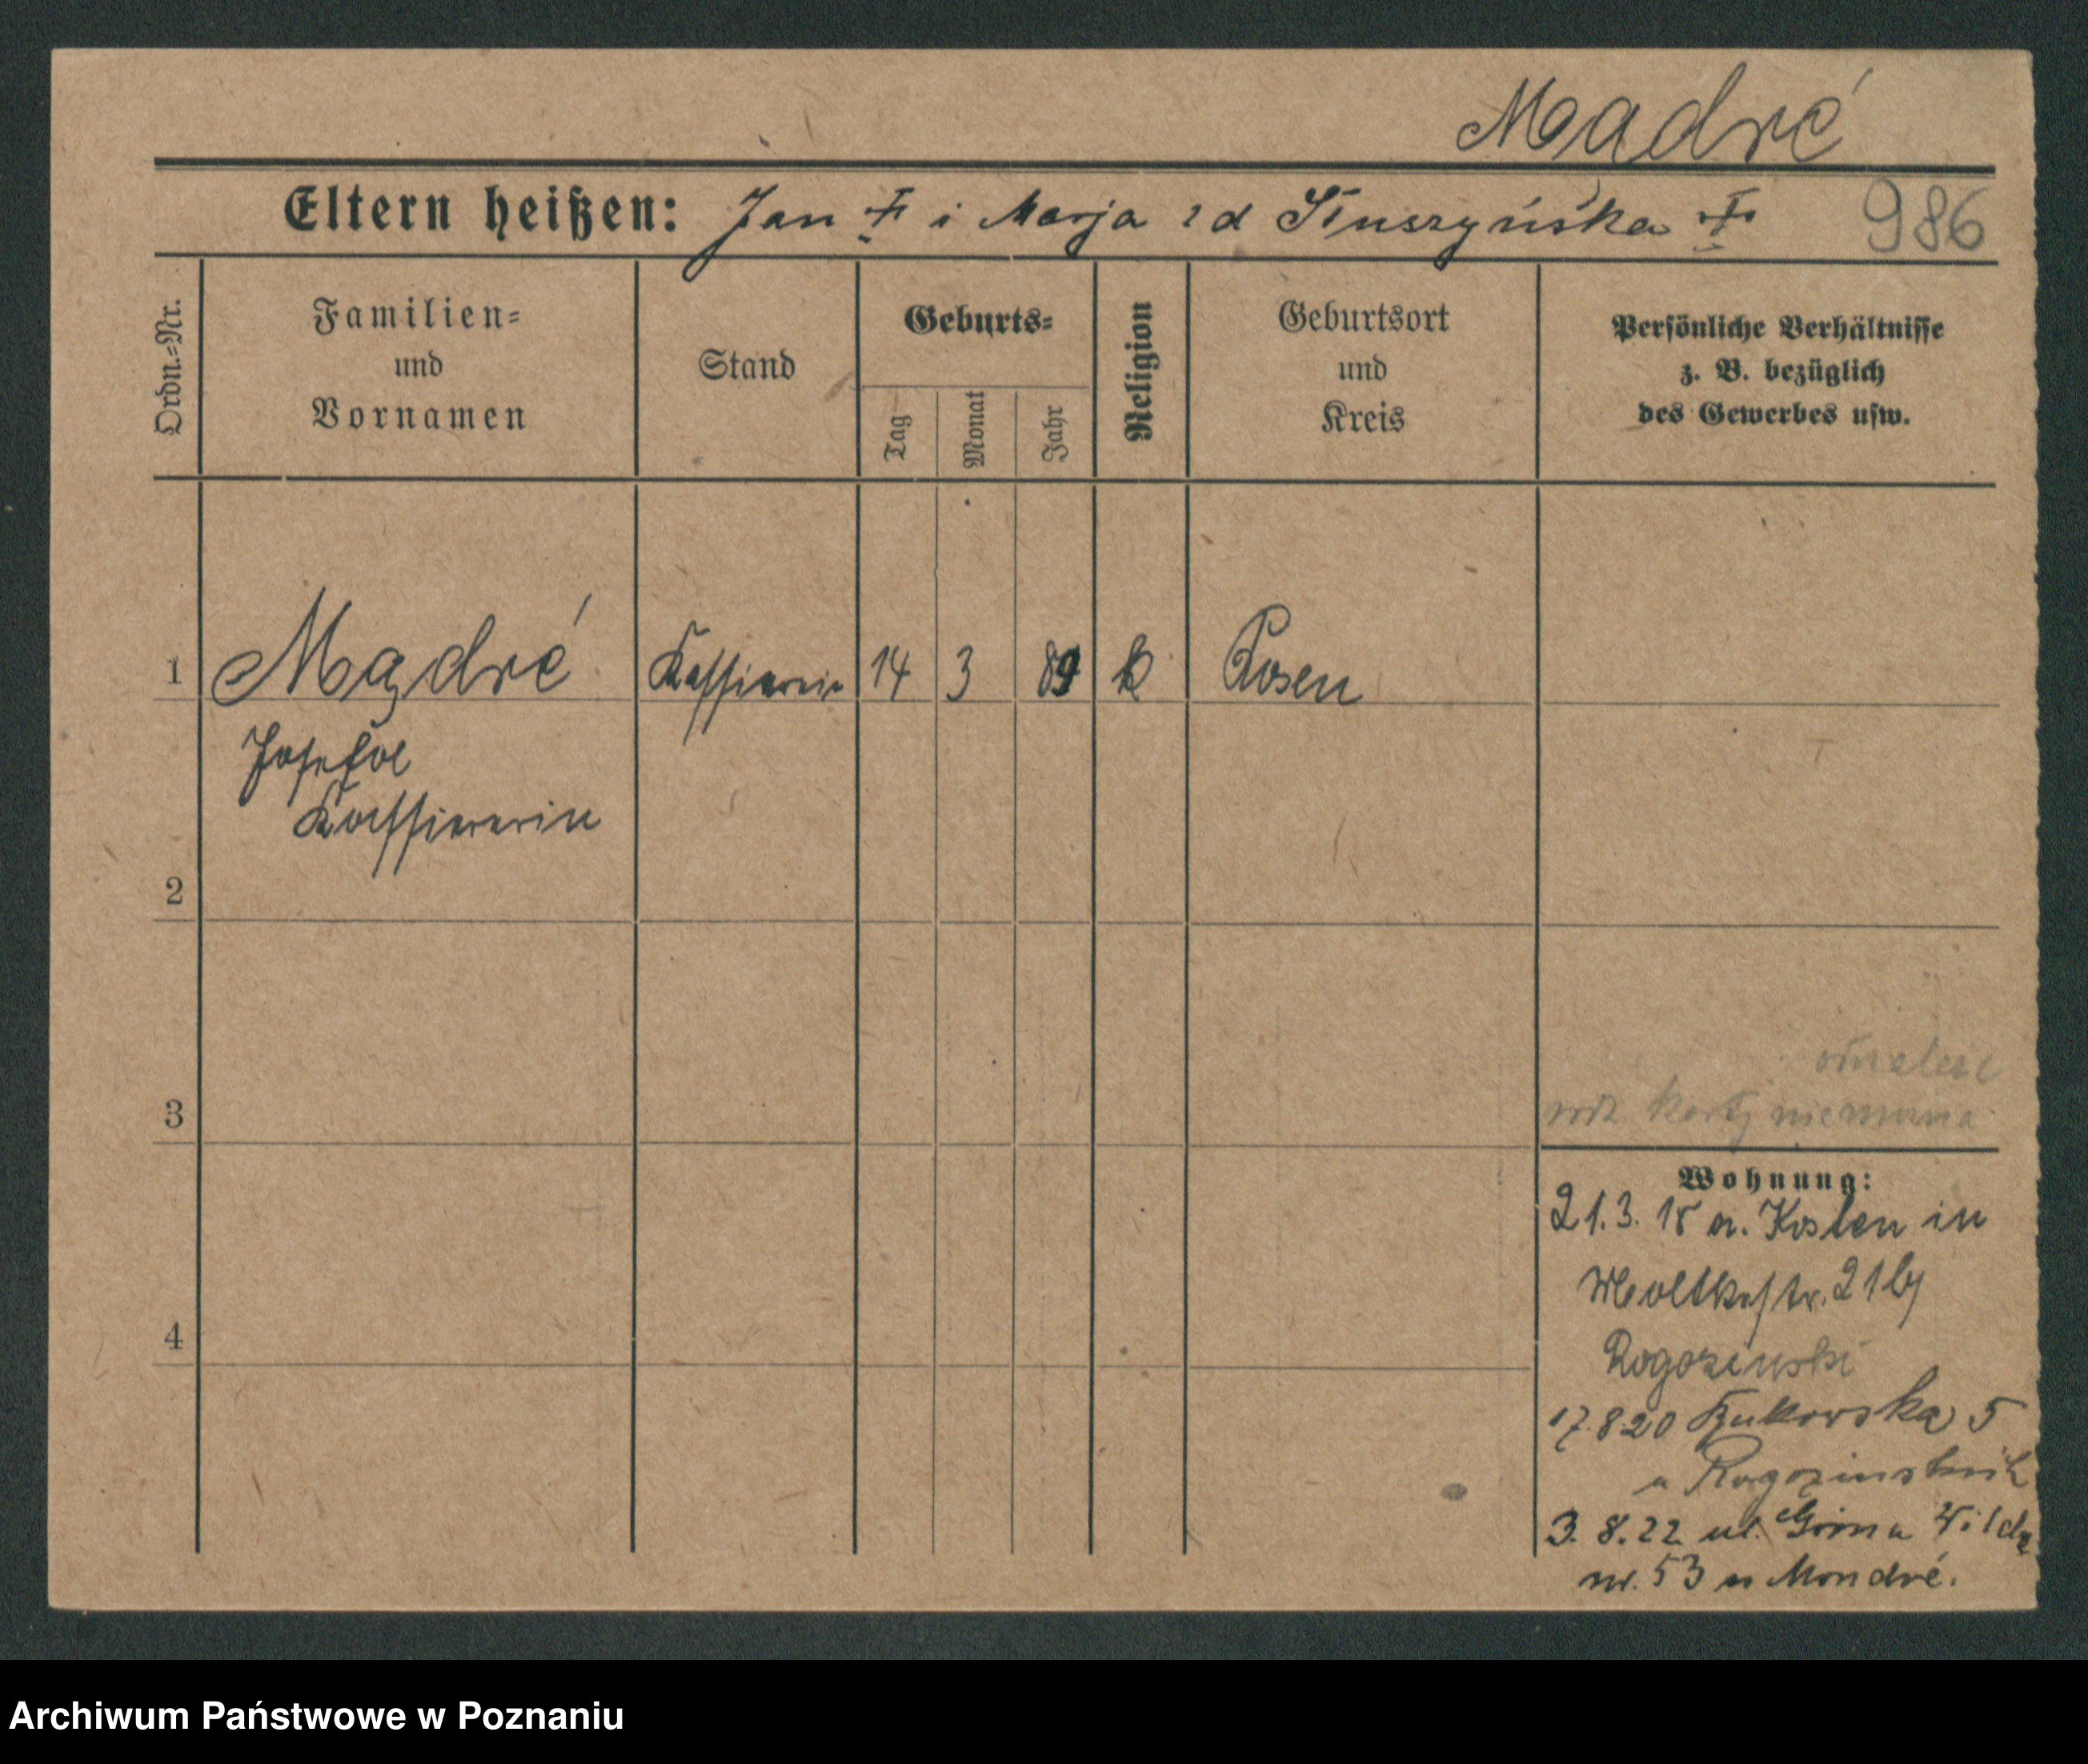 Madré
Eltern heißen: Jan † i Marja zd Stuszyńska † 986
Ordn.-Nr.
Familien-
und
Vornamen
Stand
Geburts-
Tag
Monat
Jahr
Religion
Geburtsort
und
Kreis
Persönliche Verhältnisse
z. B. bezüglich
des Gewerbes usw.
1 Mądré Kassiererin 14 3 89 k Posen
Josefa
Kassiererin
2
3
karty niema
Wohnung:
21.3.18 a. Kosten in
Moltkestr. 21 by
4
Rogozinski
17.8.20 Bukowska 5
u Rogozinskich
3.8.22 ul. Górna Wilda
nr. 53 u Mondré.
Archiwum Państwowe w Poznaniu